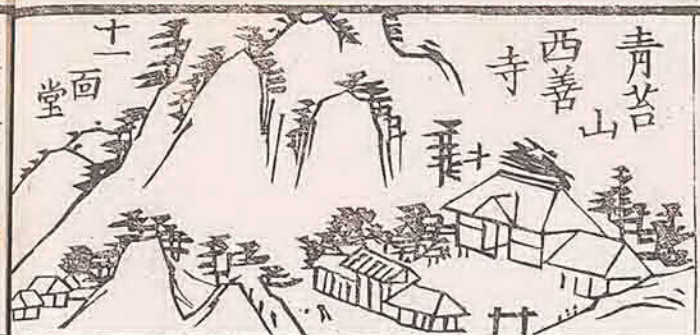 青苔
山
西善
寺
十一
面
堂